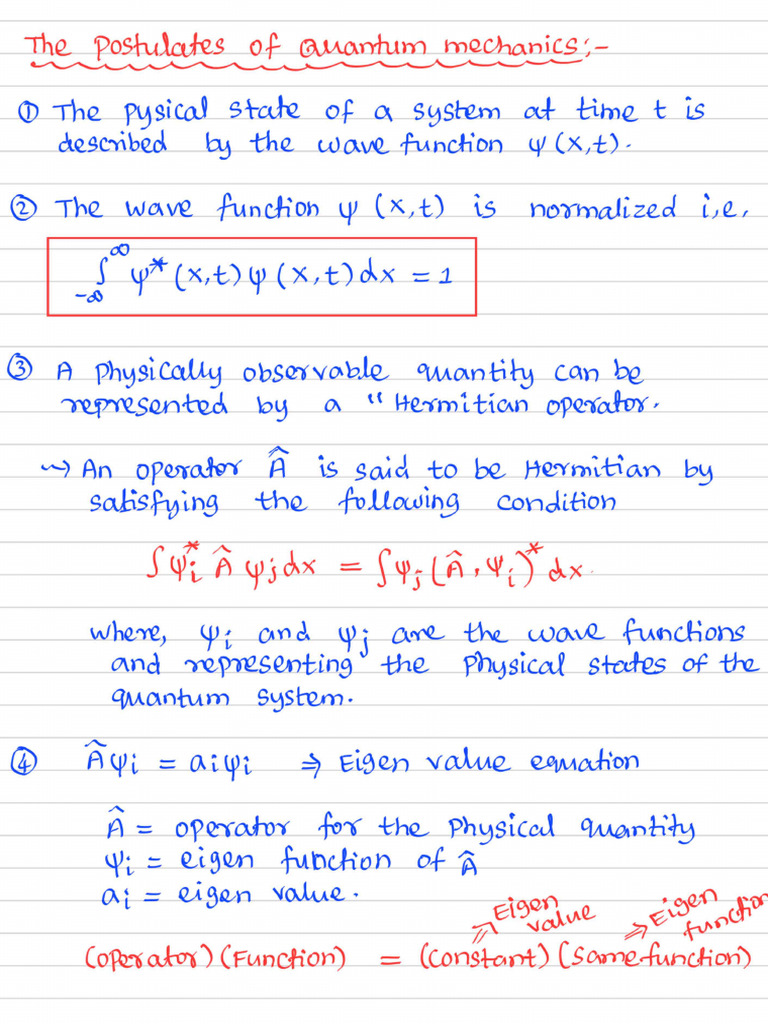 The Postulates of Quantum mechanics:-
① The pysical state of a system at time t is
described by the wave function ψ(x,t).
② The wave function ψ (x,t) is normalized i,e,
∫_{-∞}^{∞} ψ*(x,t) ψ(x,t) dx = 1
③ A physically observable quantity can be
represented by a "Hermitian operator.
⇝ An operator Â is said to be Hermitian by
satisfying the following condition
∫ψ_i* Â ψ_j dx = ∫ψ_j (Â, ψ_i)* dx.
where, ψ_i and ψ_j are the wave functions
and representing the physical states of the
quantum system.
④ Âψ_i = a_iψ_i ⇒ Eigen value equation
Â = operator for the physical quantity
ψ_i = eigen function of Â
a_i = eigen value.
⇒ Eigen value ⇒ Eigen function
(operator) (Function) = (constant) (same function)